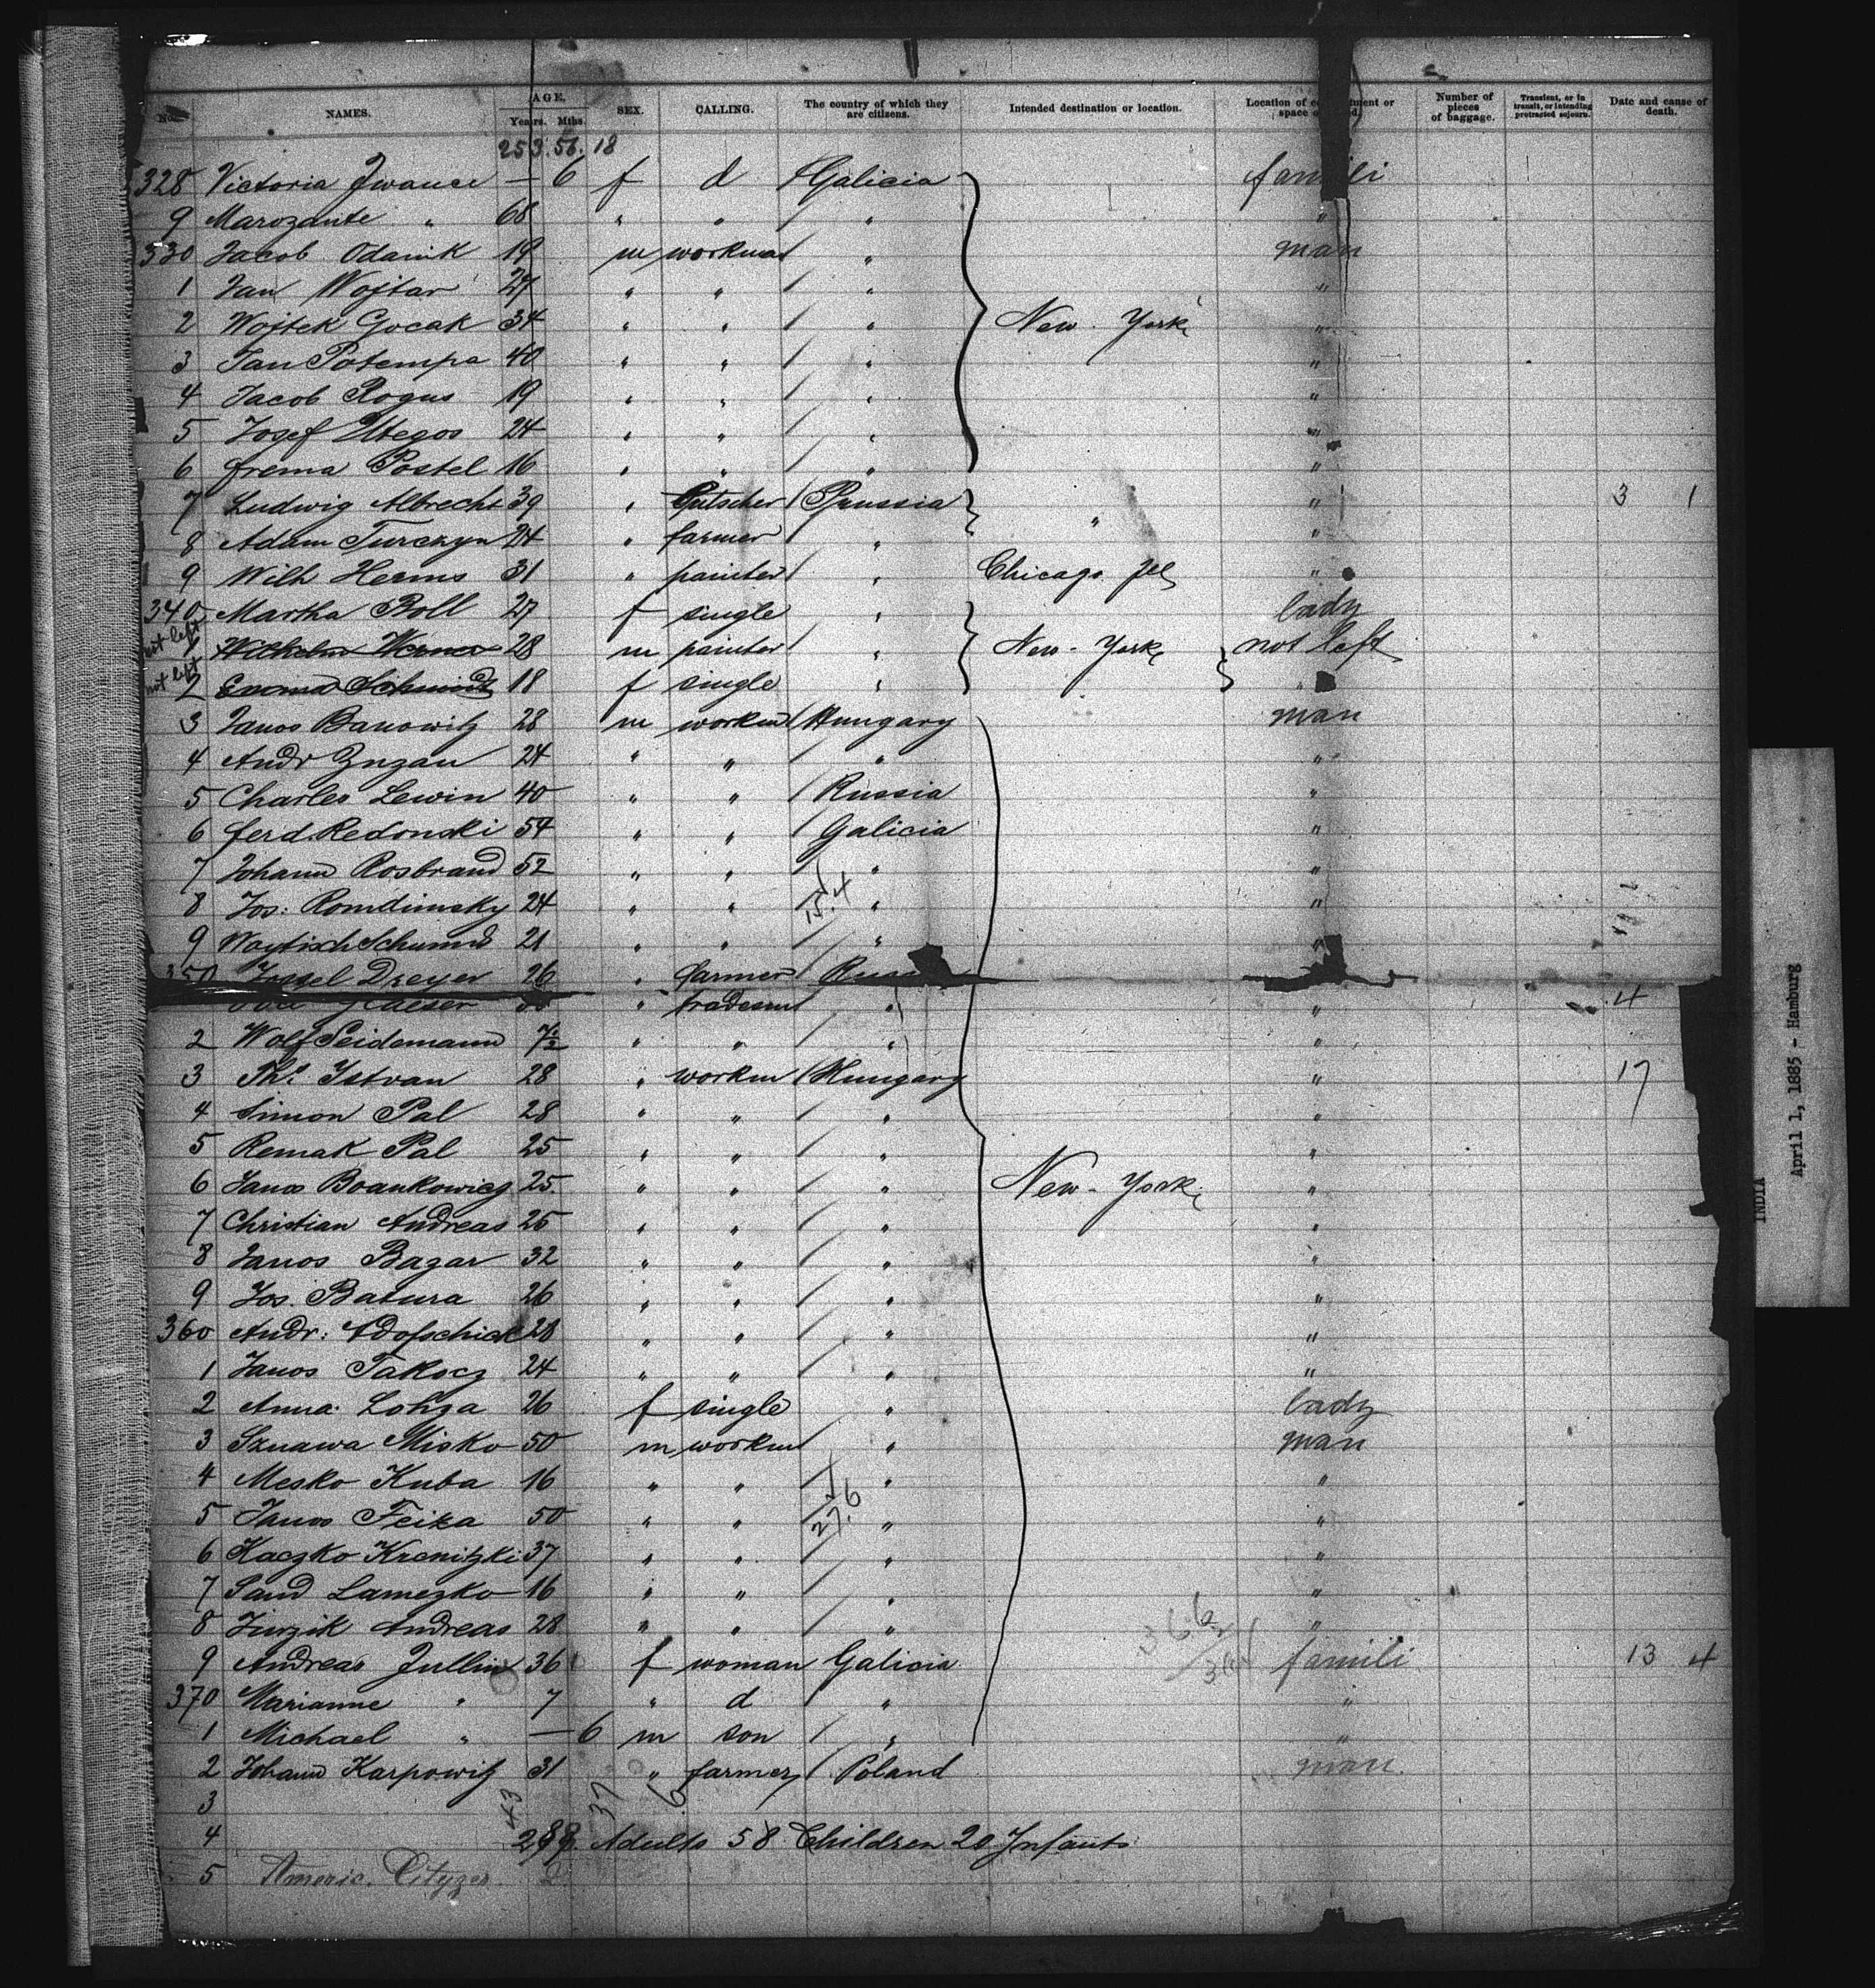 No. NAMES. AGE. Years. Mths. SEX. CALLING. The country of which they are citizens. Intended destination or location. Location of space Number of pieces of baggage. Transient, or in transit, or intending protracted sojourn. Date and cause of death.
253. 56. 18
328 Victoria — 6 f d Galicia famili
9 Marozante " 68 " " " "
330 Jacob Odanik 19 m workman " man
1 Jan Wojtar 27 " " " "
2 Wojtek Gocak 34 " " " New-York "
3 Jan Potempa 40 " " " "
4 Jacob Rogus 19 " " " "
5 Josef 24 " " " "
6 frema Postel 16 " " " "
7 Ludwig Albrecht 39 " Prussia " " 3 1
8 Adam Turczyn 24 " farmer " "
9 Wilh Herms 31 " painter " Chicago Ill "
340 Martha Boll 27 f single " lady
not left 1 Wilhelm Werner 28 m painter " New-York not left
not left 2 Emma Schmidt 18 f single " "
3 Janos Banowitz 28 m workm Hungary man
4 Andr 24 " " " "
5 Charles Lewin 40 " " Russia "
6 ferd. Redonski 54 " " Galicia "
7 Johann Rosbrand 52 " " " "
8 Jos: Romdimsky 24 " " 15.4 " "
9 21 " " " "
350 Dreyer 26 " farmer Russ
tradesm " " 4
2 Wolf Seidemann " " " "
3 Th: Istvan 28 " workm Hungary " 17
4 Simon Pal 28 " " " "
5 Remak Pal 25 " " " "
6 Janos 25. " " " New-York "
7 Christian Andreas 25 " " " "
8 Janos Bazar 32 " " " "
9 Jos. Batura 26 " " " "
360 Andr: 28 " " " "
1 Janos Takocz 24 " " " "
2 Anna Lohza 26 f single " lady
3 Misko 50 m workm " man
4 Mesko Kuba 16 " " " "
5 Janos Feika 50 " " 27.6 " "
6 Kaczko Krenitzki 37 " " " "
7 Sand Lamezko 16 " " " "
8 Andreas 28 " " " "
9 Andreas Jullin 36 f woman Galicia famili 13 4
370 Marianne " 7 " d " "
1 Michael " — 6 m son " "
2 Johann Karpowitz 31 " farmer Poland man.
3 43 37 6
4 Adults 58 Children 20 Infants
5 Americ. Cityzes 2
INDIA
April 1, 1885 - Hamburg